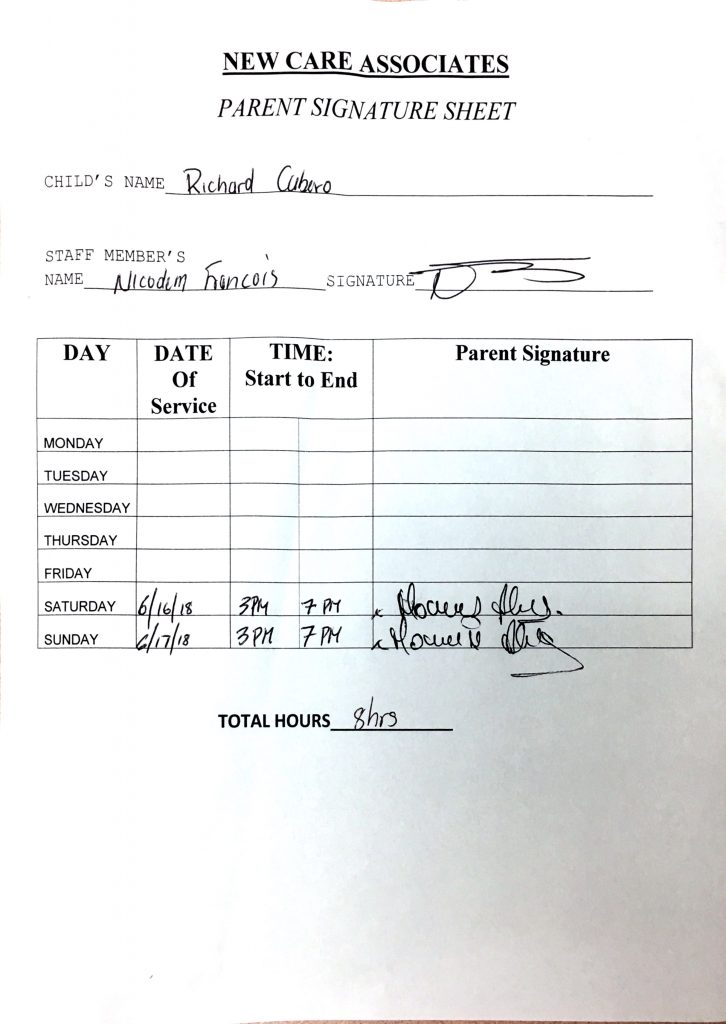 NEW CARE ASSOCIATES
PARENT SIGNATURE SHEET
CHILD'S NAME Richard Cubero
STAFF MEMBER'S
NAME Nicodem Francois SIGNATURE
DAY DATE Of Service TIME: Start to End Parent Signature
MONDAY
TUESDAY
WEDNESDAY
THURSDAY
FRIDAY
SATURDAY 6/16/18 3PM 7 PM x
SUNDAY 6/17/18 3PM 7PM x
TOTAL HOURS 8hrs